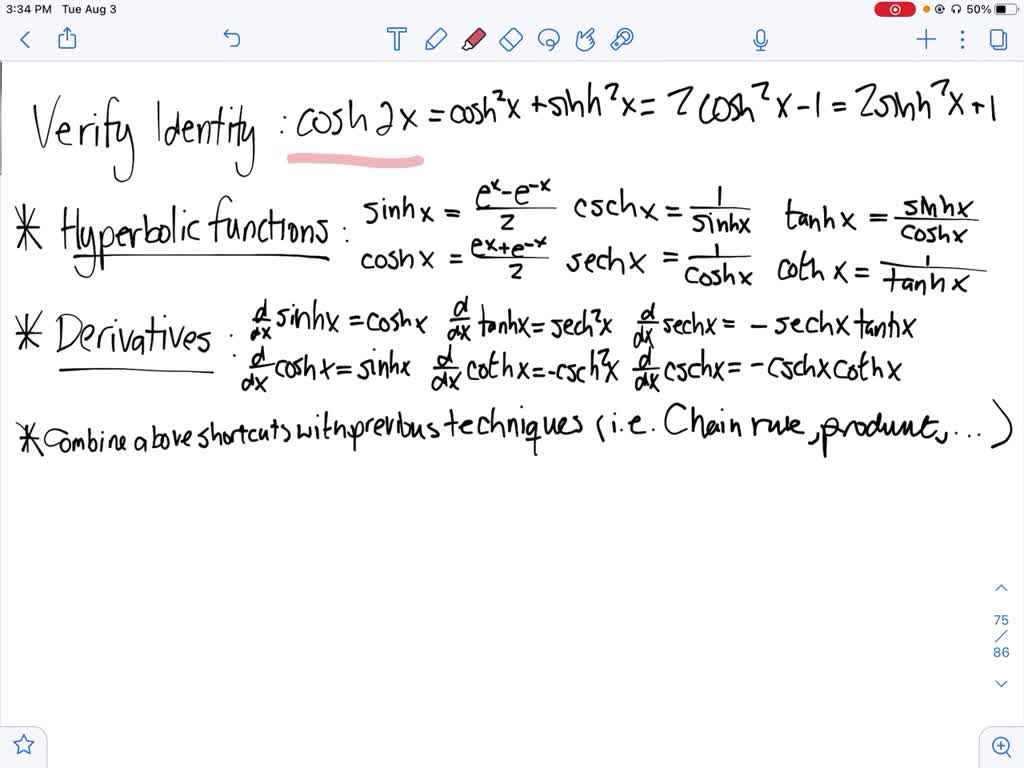 3:34 PM Tue Aug 3 50%
Verify Identity : cosh 2x = cosh²x + sinh²x = 2 cosh²x - 1 = 2 sinh²x + 1
* Hyperbolic functions : sinh x = (e^x - e^-x)/2 csch x = 1/sinh x tanh x = sinh x/cosh x
cosh x = (e^x + e^-x)/2 sech x = 1/cosh x coth x = 1/tanh x
* Derivatives : d/dx sinh x = cosh x d/dx tanh x = sech²x d/dx sech x = - sech x tanh x
d/dx cosh x = sinh x d/dx coth x = -csch²x d/dx csch x = - csch x coth x
* Combine above shortcuts with previous techniques (i.e. Chain rule, product, ...)
75
/
86